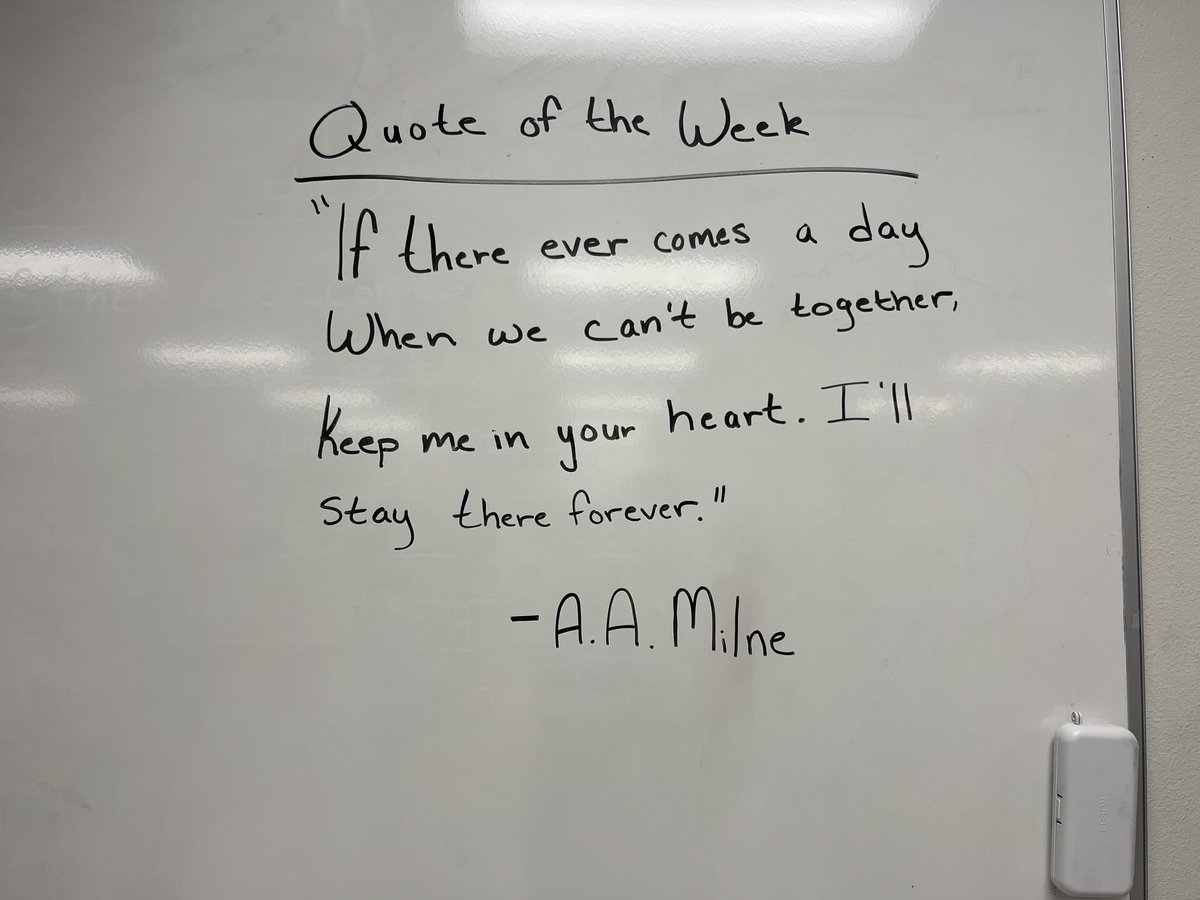 Quote of the Week
"If there ever comes a day
When we can't be together,
Keep me in your heart. I'll
stay there forever."
-A.A. Milne
EPSON